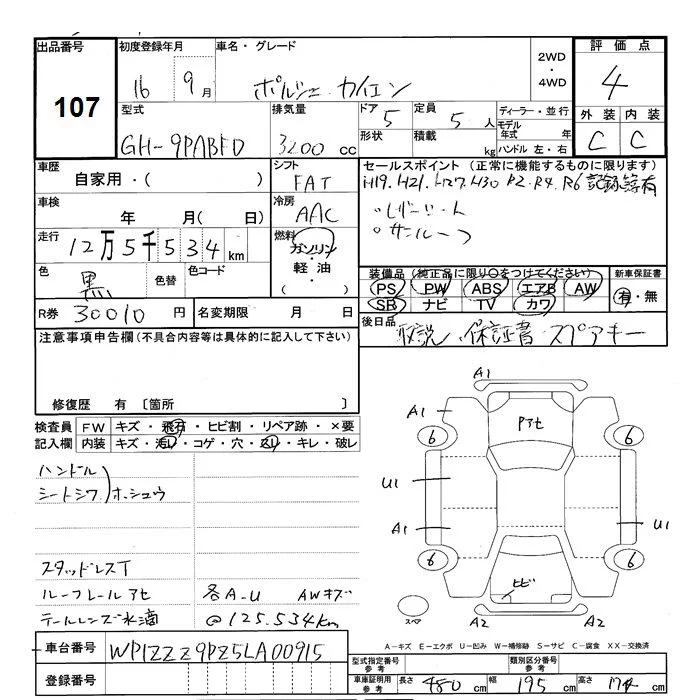 出品番号
107
初度登録年月
16 9月
車名・グレード
ポルシェ カイエン
2WD
・
4WD
評価点
4
外装 内装
C C
型式
GH-9PABFD
排気量
3200 cc
ドア 5
形状
定員 5 人
積載 kg
ディーラー・並行
モデル
年式 年
ハンドル 左・右
車歴
自家用・( )
シフト
FAT
車検
年 月( 日)
冷房
AAC
走行
12万5千534km
燃料
ガソリン
・
軽油
( )
色
黒
色替
色コード
R券 30010 円
名変期限 月 日
セールスポイント (正常に機能するものに限ります)
H19.H21.H27.H30 R2.R4.R6 記録簿有
・レザーシート
・サンルーフ
装備品 (純正品に限り○をつけてください)
PS PW ABS エアB AW
SR ナビ TV カワ
新車保証書
有・無
後日品
取説.保証書.スペアキー
注意事項申告欄(不具合内容等は具体的に記入して下さい)
修復歴 有 〔箇所 〕
検査員
記入欄
FW キズ・飛石・ヒビ割・リペア跡・×要
内装 キズ・汚レ・コゲ・穴・スレ・キレ・破レ
ハンドル
シートシワ ホシュウ
スタッドレスT
ルーフレールアセ 各A-U AWキズ
テールレンズ水滴 @125.534km
A1
A1
アセ
6 6
U1
A1
U1
6 6
ヒビ
スペア
A2 A2
A-キズ E-エクボ U-凹み W-補修跡 S-サビ C-腐食 XX-交換済
車台番号
WP1ZZZ9PZ5LA00915
登録番号
型式指定番号
参考
類別区分番号
参考
車庫証明用
参考
長さ 480cm 幅 195cm 高さ 174cm